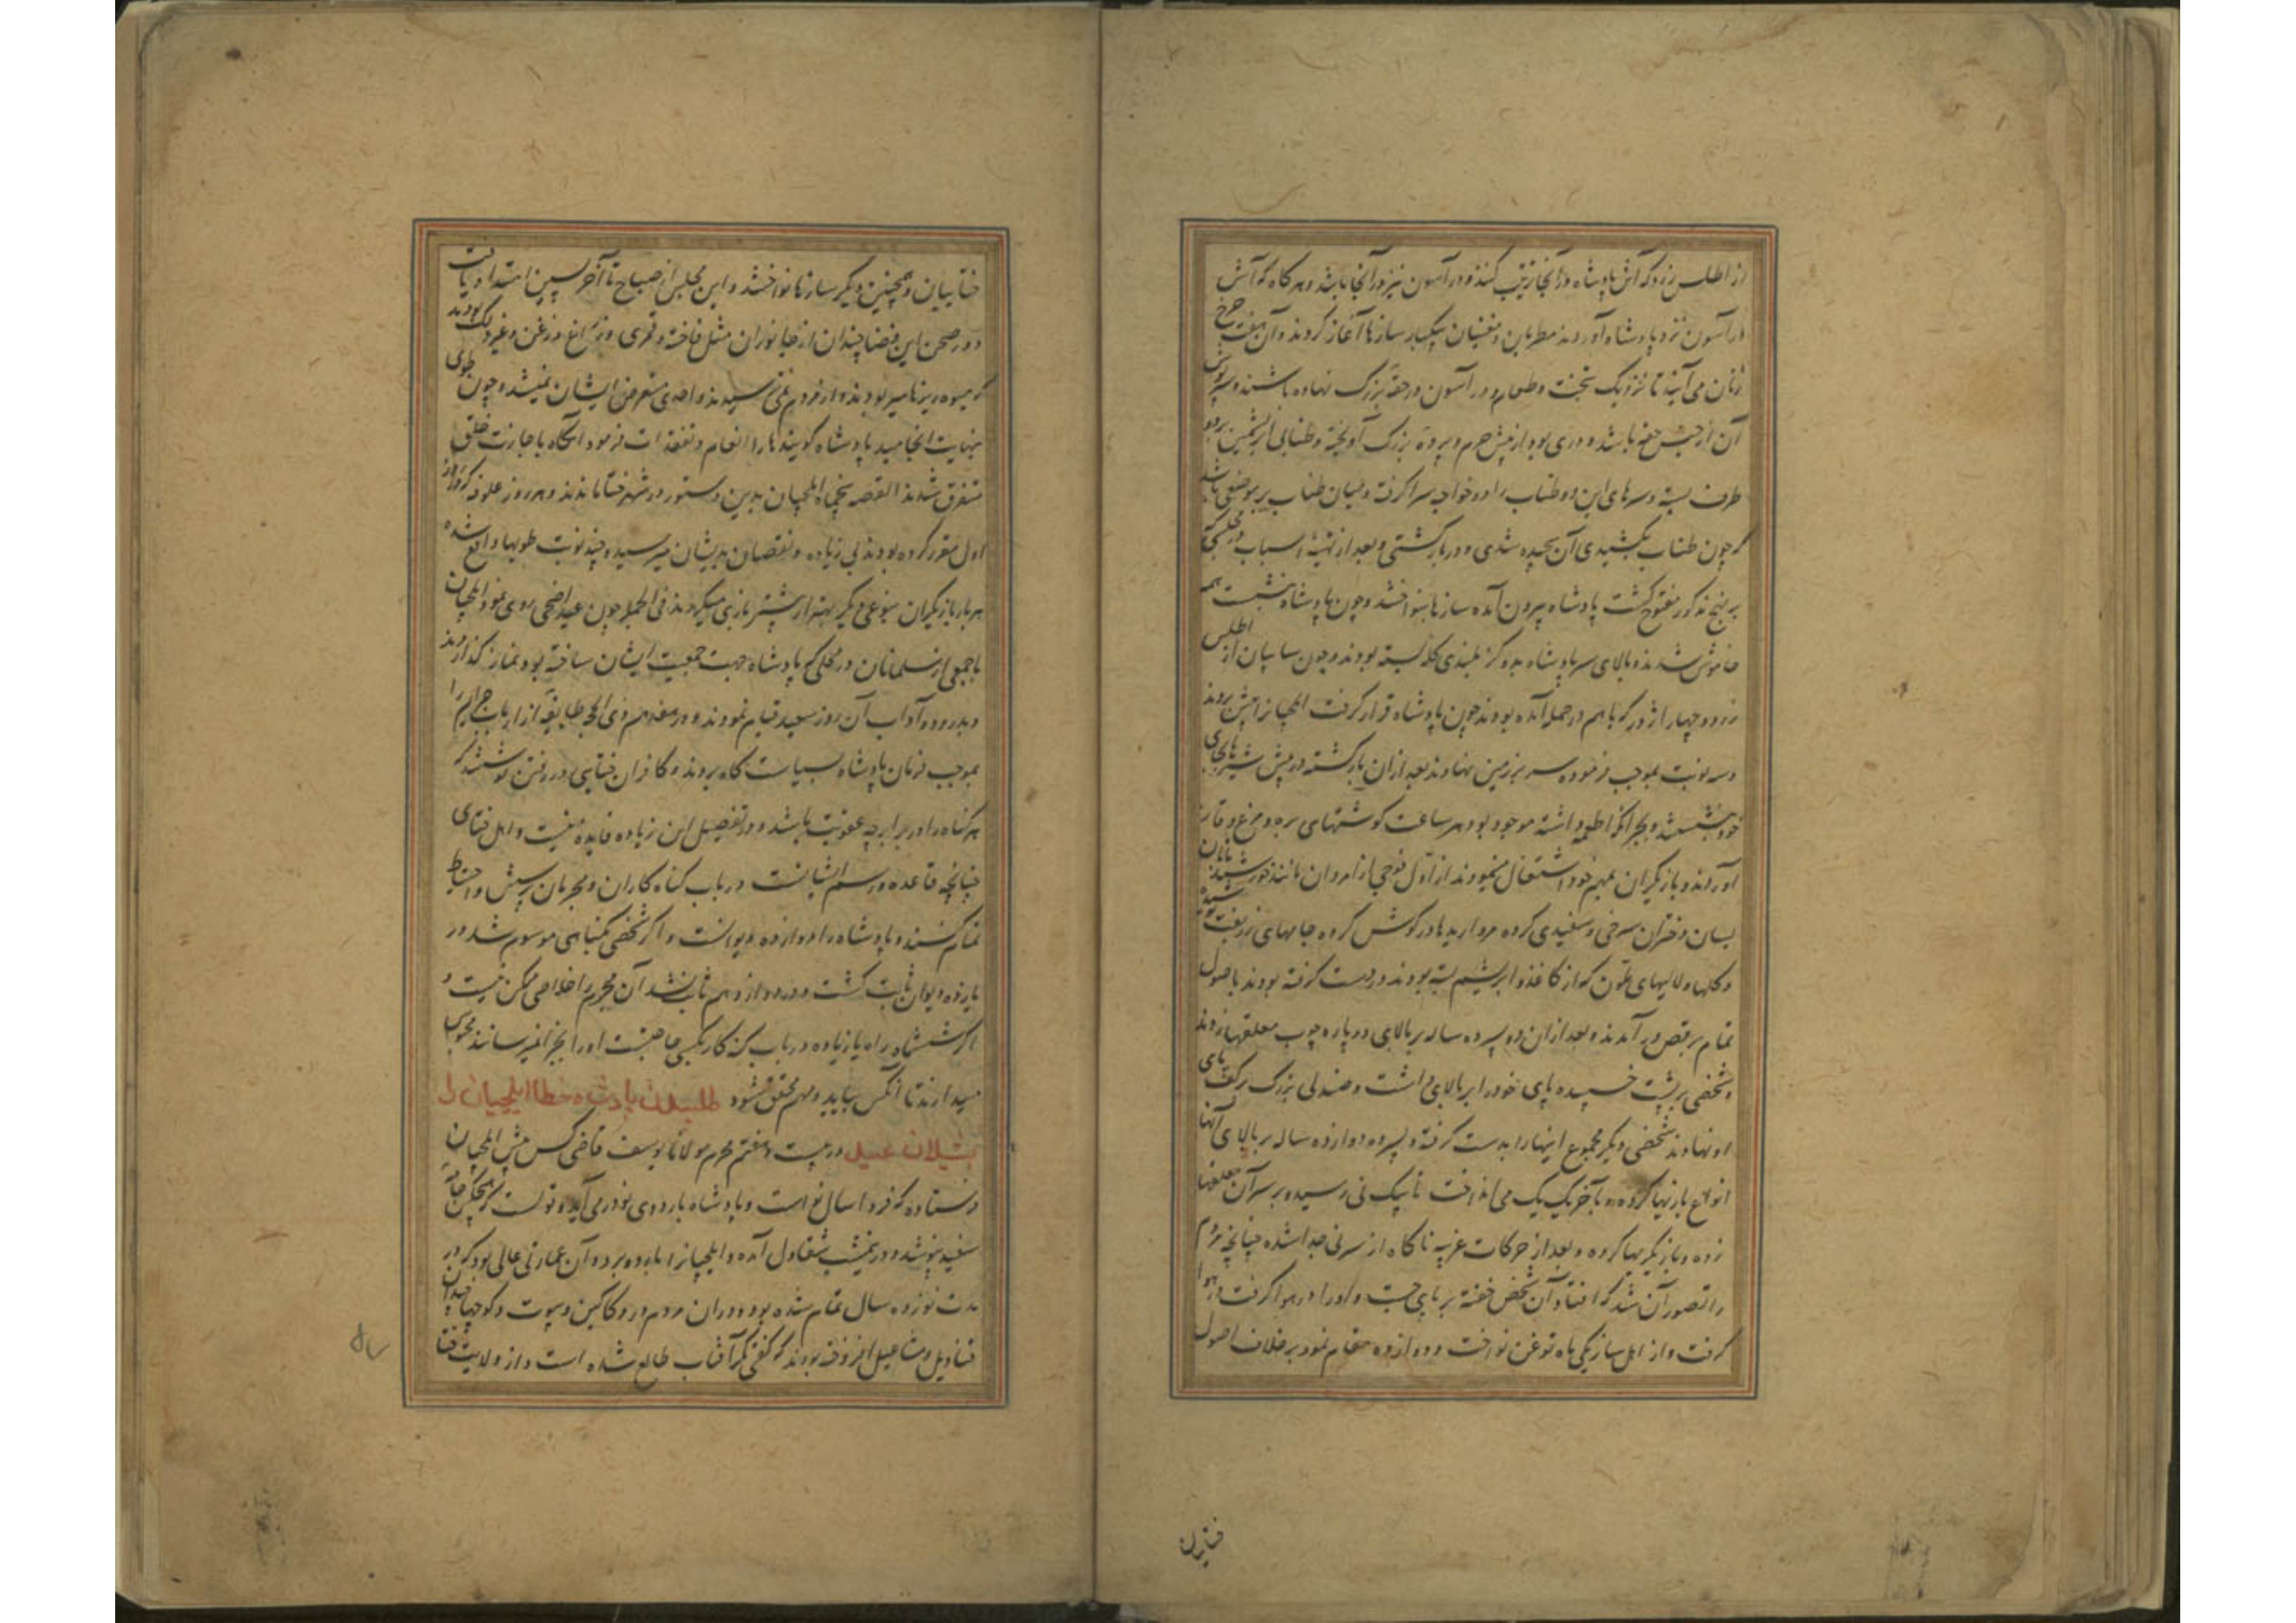 از اطلس زرد که آش پادشاه در آنجا ترتیب کنند و دراسون نیز در آنجا باشد و هر گاه که آش
و دراسون نزد پادشاه آوردند مطربان و مغنیان بیکبار سازها آغاز کردند و آن هفت چرخ
زنان می آیند تا نزدیک تخت و طعام و دراسون در حقه بزرگ نهاده باشند و سرپوش
آن از جنس حقه باشد و دری بود از پیش حرم و پرده بزرگ آویخته و طنابی ابریشمین بر دو
طرف بسته و سرهای این دو طناب را دو خواجه سرا گرفته و میان طناب بر موضعی باشد
که چون طناب بکشیدی آن پیچیده شدی و در باز گشتی و بعد از تهیه اسباب مجلس که
بر نهج مذکور مفتوح گشت پادشاه بیرون آمده سازها بنواختند و چون پادشاه بنشست همه
خاموش شدند و بالای سر پادشاه بده گز بلندی کله بسته بودند و چون سایبان از اطلس
زرد و چهار اژدر که با هم در حمله آمده بودند چون پادشاه قرار گرفت ایلچیانرا پیش بردند
و سه نوبت بموجب فرموده سر بر زمین نهادند بعد ازان بازگشته در پیش شیرهای بجای
خود بنشستند و بجز آنکه اطعمه و اشته موجود بود هر ساعت گوشتهای بره و مرغ و قاز
آوردند و بازیگران بمهم خود اشتغال نمودند از اول فوجی از امردان مانند خورشید تابان
بسان دختران سرخی و سفیدی کرده مرواریدها در گوش کرده جامهای زربفت پوشیده
و گلها و لالهای ملون که از کاغذ و ابریشم بسته بودند در دست گرفته بودند باصول
تمام برقص در آمدند و بعد ازان دو پسر ده ساله بر بالای دو پاره چوب معلقها زدند
و شخصی بر پشت خسپیده پای خود را بر بالای داشت و چند نی بزرگ بر کف پای
او نهادند شخصی دیگر مجموع اینها را بدست گرفته و پسر ده دوازده ساله بر بالای آنها
انواع بازیها کرده و بآخر یک یک می انداخت تا بیک نی رسید و بر سر آن معلقها
زده و بازیگریها کرده و بعد از حرکات غریبه ناگاه از سر نی جدا شده چنانچه مردم
را تصور آن شد که افتاد آن شخص خفته بر پای جست و او را در هوا گرفت در هوا
گرفت و از اهل ساز یکی یاتوغن نواخت و دوازده مقام نمود بر خلاف اصول
ختاییان و همچنین دیگر سازها نواختند و این مجلس از صباح تا آخر پسین امتداد یافت
و در صحن این فضا چندان از جانوران مثل فاخته و قمری و زاغ و زغن و غیر ذلک بودند
که میوه ریزها میربودند و از مردم نمی ترسیدند و احدی متعرض ایشان نمیشد و چون طوی
بنهایت انجامید پادشاه گویندها را انعام و تفقدات فرمود آنگاه باجازت خلق
متفرق شدند القصه پنجماه ایلچیان بدین دستور در شهر ختا ماندند و هر روز علوفه که روز
اول مقرر کرده بودند بی زیاده و نقصان بدیشان میرسید و چند نوبت طویها واقع شده
هر بار بازیگران بنوعی دیگر بهتر از پیشتر بازی میکردند فی الجمله چون عید اضحی روی نمود ایلچیان
با جمعی از مسلمانان در محلی که پادشاه جهت جمعیت ایشان ساخته بود نماز گذاردند
و بدرود و آداب آن روز سعید قیام نمودند و در هفدهم ذی الحجه طایفه از ارباب جرایم را
بموجب فرمان پادشاه بسیاست گاه بردند و کافران ختایی در دفتر نوشتند که
هر گناه را در برابر چه عقوبت باشد و در تفصیل این زیاده فایده نیست و اهل ختای
چنانچه قاعده و رسم ایشانست در باب گناه کاران و مجرمان پرسش و احتیاط
تمام کنند و پادشاه را دوازده دیوانست و اگر شخصی بگناهی موسوم شد در
یازده دیوان ثابت گشت و در دوازدهم ثابت نشد آن مجرم را خلاصی ممکن نیست و
اگر ششماه راه یا زیاده در باب گنه کار بکسی حاجتست او را بجزا نمیرسانند محبوس
میدارند تا آنکس بیاید و مهم محقق شود طلبیدن پادشاه خطا ایلچیان را
بشیلان عید در بیست و هفتم محرم مولانا یوسف قاضی کس پیش ایلچیان
فرستاده که فردا سال نو است و پادشاه باردوی نو در می آید و تو است که هیچکس جامه
سفید نپوشد و در نیمشب شقاول آمده و ایلچیانرا باردو برد و آن عمارتی عالی بود که در
مدت نوزده سال تمام شده بود و دران مردم در دکاکین و بیوت و کوچها چندان
قنادیل و مشاعل افروخته بودند که گفتی مگر آفتاب طالع شده است و از ولایت ختا
ختاییان